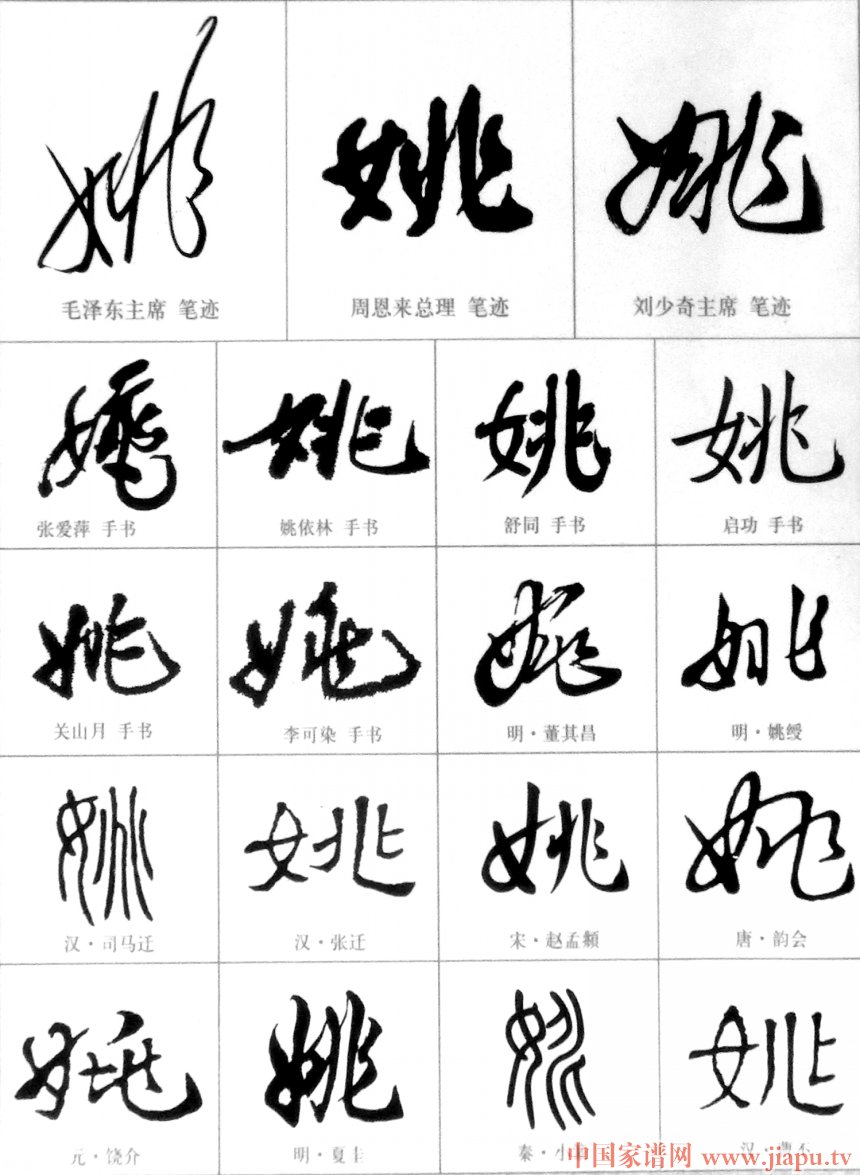 姚 姚 姚
毛泽东主席 笔迹 周恩来总理 笔迹 刘少奇主席 笔迹
姚 姚 姚 姚
张爱萍 手书 姚依林 手书 舒同 手书 启功 手书
姚 姚 姚 姚
关山月 手书 李可染 手书 明·董其昌 明·姚绶
姚 姚 姚 姚
汉·司马迁 汉·张迁 宋·赵孟頫 唐·韵会
姚 姚 姚 姚
元·饶介 明·夏 秦·小 汉·曹丕
中国家谱网 www.jiapu.tv